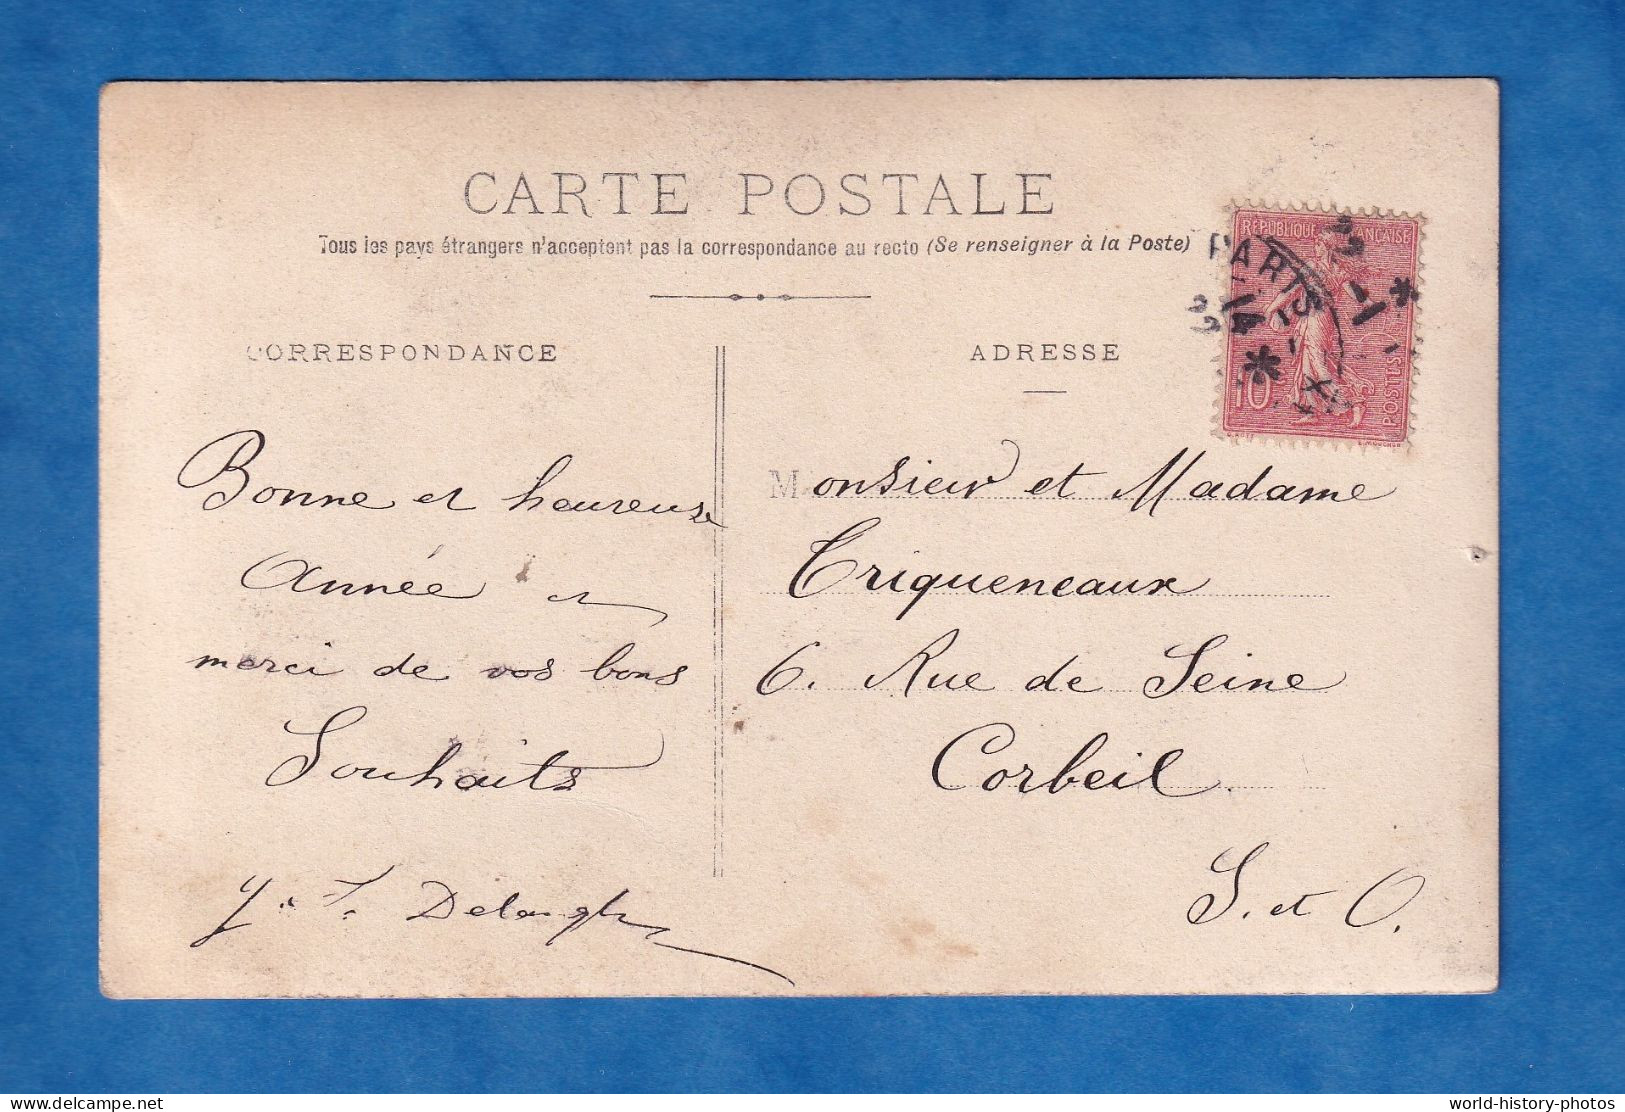 CARTE POSTALE
Tous les pays étrangers n'acceptent pas la correspondance au recto (Se renseigner à la Poste)
CORRESPONDANCE
Bonne et heureuse
Année et
merci de vos bons
Souhaits
ADRESSE
Monsieur et Madame
Triqueneaux
6. Rue de Seine
Corbeil.
S. et O.
RÉPUBLIQUE FRANÇAISE
10
POSTES
PARIS
delcampe.net
world-history-photos